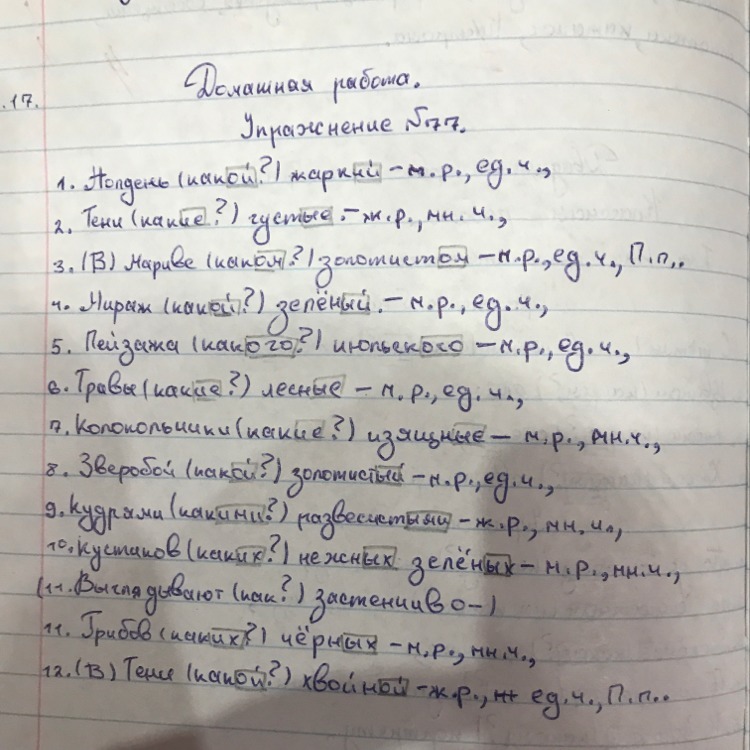 .17.
Домашная работа.
Упражнение №77.
1. Полдень (какой?) жаркий – м.р., ед.ч.,
2. Тени (какие?) густые. – ж.р., мн.ч.,
3. (В) мариве (каком?) золотистом – м.р., ед.ч., П.п..
4. Мираж (какой?) зелёный. – м.р., ед.ч.,
5. Пейзажа (какого?) июльского – м.р., ед.ч.,
6. Травы (какие?) лесные – м.р., ед.ч.,
7. Колокольчики (какие?) изящные – м.р., мн.ч.,
8. Зверобой (какой?) золотистый – м.р., ед.ч.,
9. Кудрами (какими?) развесистыми – ж.р., мн.ч.,
10. Кустиков (каких?) нежных зелёных – м.р., мн.ч.,
(11. Выглядывают (как?) застенчиво –)
11. Грибов (каких?) чёрных – м.р., мн.ч.,
12. (В) Тени (какой?) хвойной – ж.р., ед.ч., П.п..